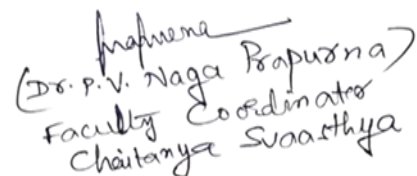 (Dr. P.V. Naga Prapurna)
Faculty Coordinator
Chaitanya Svaasthya